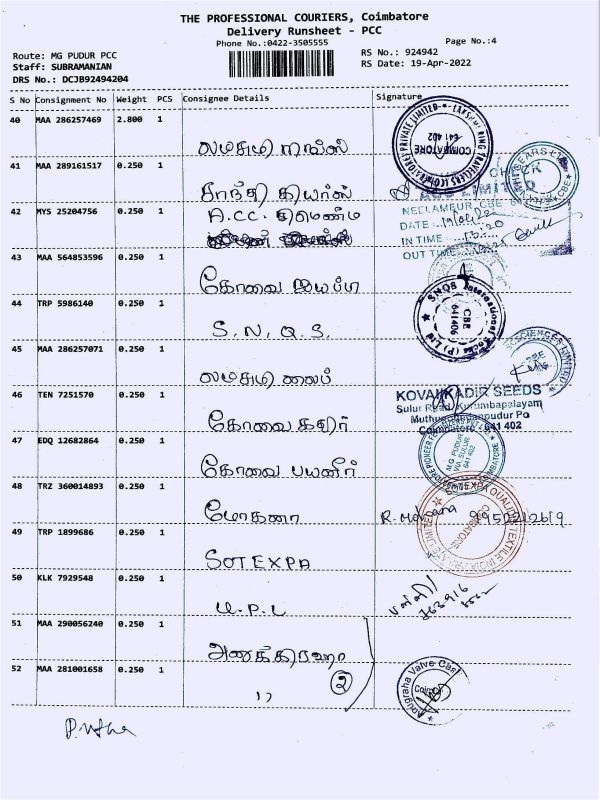 THE PROFESSIONAL COURIERS, Coimbatore
Delivery Runsheet - PCC
Phone No.:0422-3505555
Page No.:4
Route: MG PUDUR PCC
RS No.: 924942
Staff: SUBRAMANIAN
RS Date: 19-Apr-2022
DRS No.: DCJB92494204
S No Consignment No Weight PCS Consignee Details Signature
40 MAA 286257469 2.800 1
41 MAA 289161517 0.250 1
காந்தி கியர்ஸ்
42 MYS 25204756 0.250 1
A.CC. சிமெண்ட்
43 MAA 564853596 0.250 1
கோவை
44 TRP 5986140 0.250 1
S.N.Q.S.
45 MAA 286257071 0.250 1
46 TEN 7251570 0.250 1
கோவை கதிர்
47 EDQ 12682864 0.250 1
கோவை பயனீர்
48 TRZ 360014893 0.250 1
மோகனா
R. Mohana
49 TRP 1899686 0.250 1
SOTEXPA
50 KLK 7929548 0.250 1
U.P.L
51 MAA 290056240 0.250 1
அனுக்கிரஹா
52 MAA 281001658 0.250 1
,, 2
COIMBATORE
641 402
LIMITED
NEELAMBUR, CBE
DATE
IN TIME
OUT TIME
SNQS International Socks (P) Ltd
CBE
641406
KOVAI KADIR SEEDS
Sulur Road, Kurumbapalayam
Coimbatore - 641 402
M.G. PUDUR
VIA, SULUR
641 402
COIMBATORE
Anugraha Valve Cast